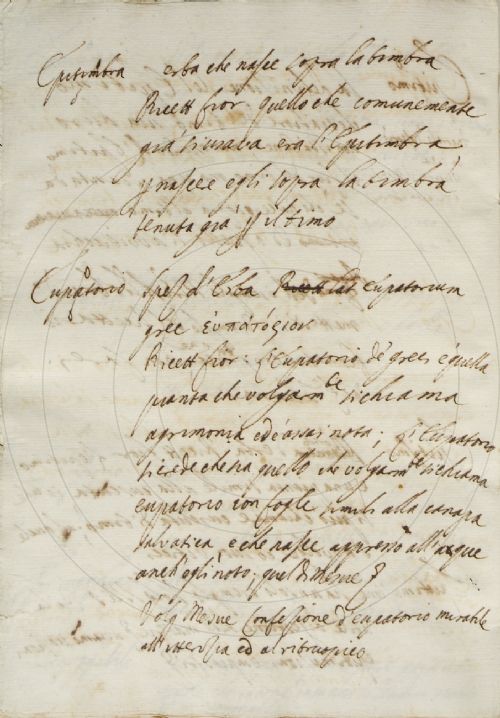 Epitimbra erba che nasce sopra la timbra
Ricett fior quello che comunemente
già si usava era l'Epitimbra
nasce egli sopra la timbra
tenuta già il timo
Eupatorio Spez d'Erba lat Eupatorium
grec ευπατόριον
Ricett fior: L'Eupatorio de greci è quella
pianta che volgarmte si chiama
agrimonia ed è assai nota; L'Eupatorio
si crede che sia quello che volgarmte si chiama
eupatorio con foglie simili alla canapa
salvatica, e che nasce appresso all'acque
anch'egli noto; quel di Mesue
Volg Mesue Confezione d'eupatorio mirabile
all'itterizia ed al ritruopico